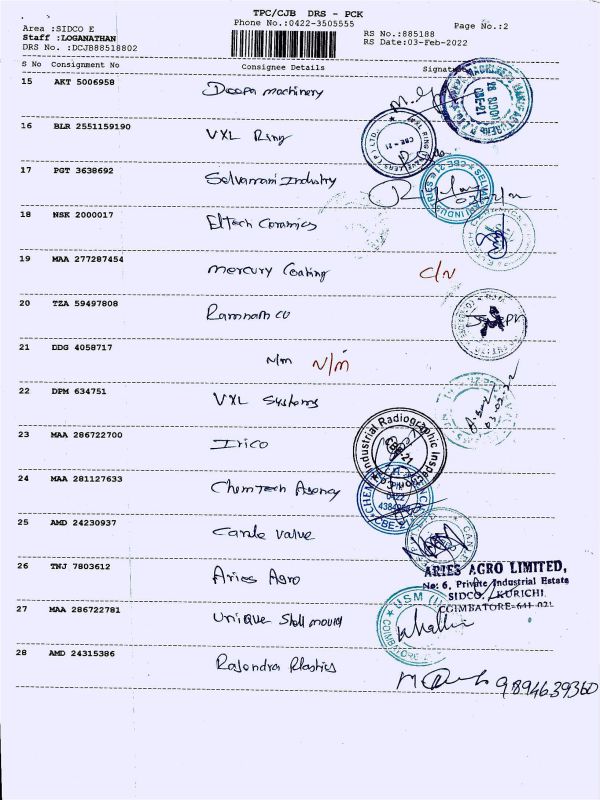 TPC/CJB DRS - PCK
Phone No.:0422-3505555
Page No.:2
Area :SIDCO E
Staff :LOGANATHAN
DRS No. :DCJB88518802
RS No.:885188
RS Date:03-Feb-2022
S No Consignment No Consignee Details Signatu
15 AKT 5006958 Deepa machinery
16 BLR 2551159190 VXL Ring
17 PGT 3638692 Selvamani Industry
18 NSK 2000017 Eltech Ceramics
19 MAA 277287454 Mercury Coating C/N
20 TZA 59497808 Ramnam co
21 DDG 4058717 N/m N/m
22 DPM 634751 VXL Systems
03.02.22
23 MAA 286722700 Irico
Industrial Radiographic Inspec
24 MAA 281127633 Chemtech Agency
0422
CBE-21
25 AMD 24230937 Carde valve
26 TNJ 7803612 Aries Agro
ARIES AGRO LIMITED,
No: 6, Private Industrial Estate
SIDCO, KURICHI
COIMBATORE-641 021
27 MAA 286722781 Unique Shell mould
USM
28 AMD 24315386 Rajendra Plastics
9894639360